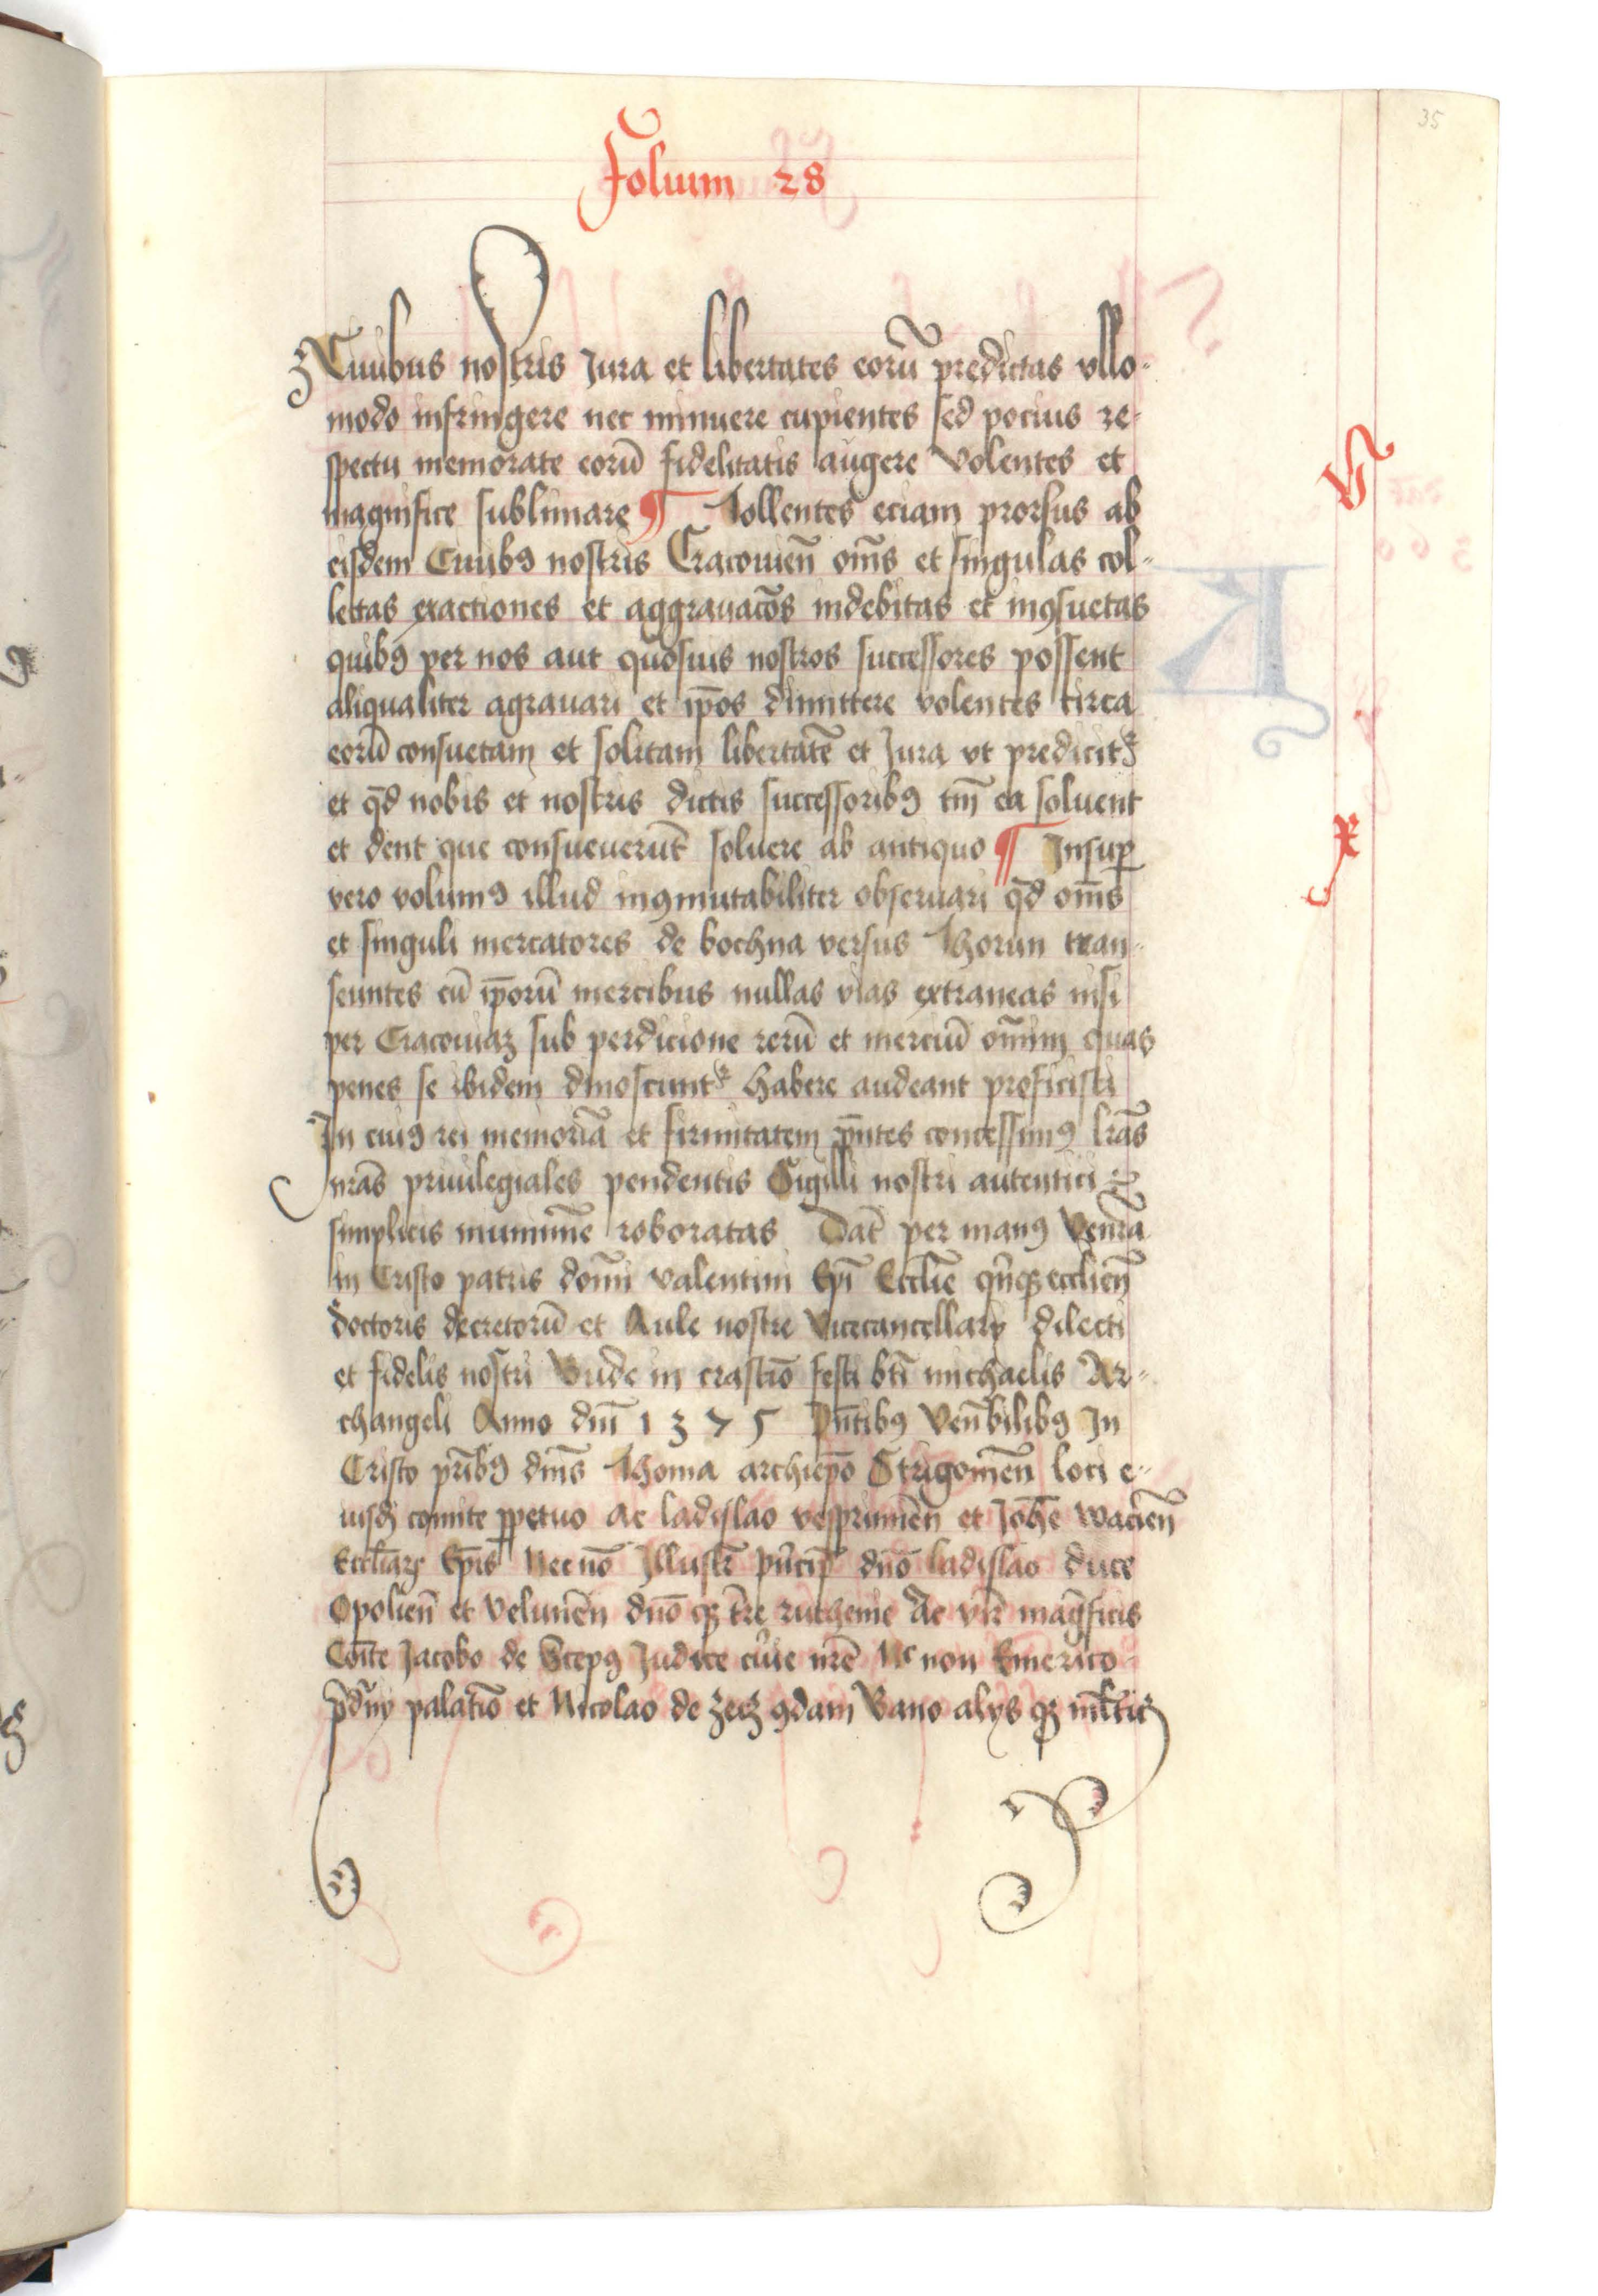 35
Folium 28
Ciuibus nostris Jura et libertates eorū predictas vllo-
modo infringere nec minuere cupientes sed pocius re-
spectu memorate eorū fidelitatis augere volentes et
magnifice sublimare ¶ Tollentes eciam prorsus ab
eisdem Ciuibꝯ nostris Cracouien̄ om̄s et singulas col-
lectas exactiones et aggrauacōs indebitas et inꝯsuetas
quibꝯ per nos aut quosuis nostros successores possent
aliqualiter agrauari et ip̄os dimittere volentes circa
eorū consuetam et solitam libertatē et Jura vt predicit᷑
et qd̄ nobis et nostris dictis successoribꝯ tm̄ ea soluent
et dent que consueuerūt soluere ab antiquo ¶ Insuꝑ
vero volumꝯ illud inꝯmutabiliter obseruari qd̄ om̄s
et singuli mercatores de bochna versus Thorun tran-
seuntes cū ip̄orū mercibus nullas vias extraneas nisi
per Cracouiaꝫ sub perdicione rerū et merciū om̄nim quas
penes se ibidem dinoscunt᷑ habere audeant proficisci
In cuiꝯ rei memoriā et firmitatem pn̄tes concessimꝯ lrās
nrās priuilegiales pendentis Sigilli nostri autentici
simplicis munimīe roboratas Dat̄ per manꝯ Venrā
in Cristo patris domī valentini Ep̄i Eccl̄ie qn̄qꝫ eccl̄ien̄
doctoris decretorū et Aule nostre Vicecancellarij dilecti
et fidelis nostri Bude in crastīo festi bt̄i michaelis Ar-
changeli Anno dn̄i 1375 Pn̄tibꝯ Ven̄bilibꝯ In
Cristo pr̄ibꝯ dn̄is Thoma archiep̄o Strigonien̄ loci e-
iusdꝫ comite ꝑpetuo ac ladislao vesprimien̄ et Joh̄e wacien̄
Eccl̄iarꝫ Ep̄is Necnō Illustr̄ prīcip̄ dn̄o ladislao duce
Opolien̄ et velunien̄ dn̄o qꝫ tr̄e ruthenie Ac vir̄ magn̄ficis
Com̄te Jacobo de Scepꝯ Judice cur̄ie nr̄e Nͨ non Emerico
palatīo et Nicolao de Zecz ꝯdam Bano alijs qꝫ ml̄tis